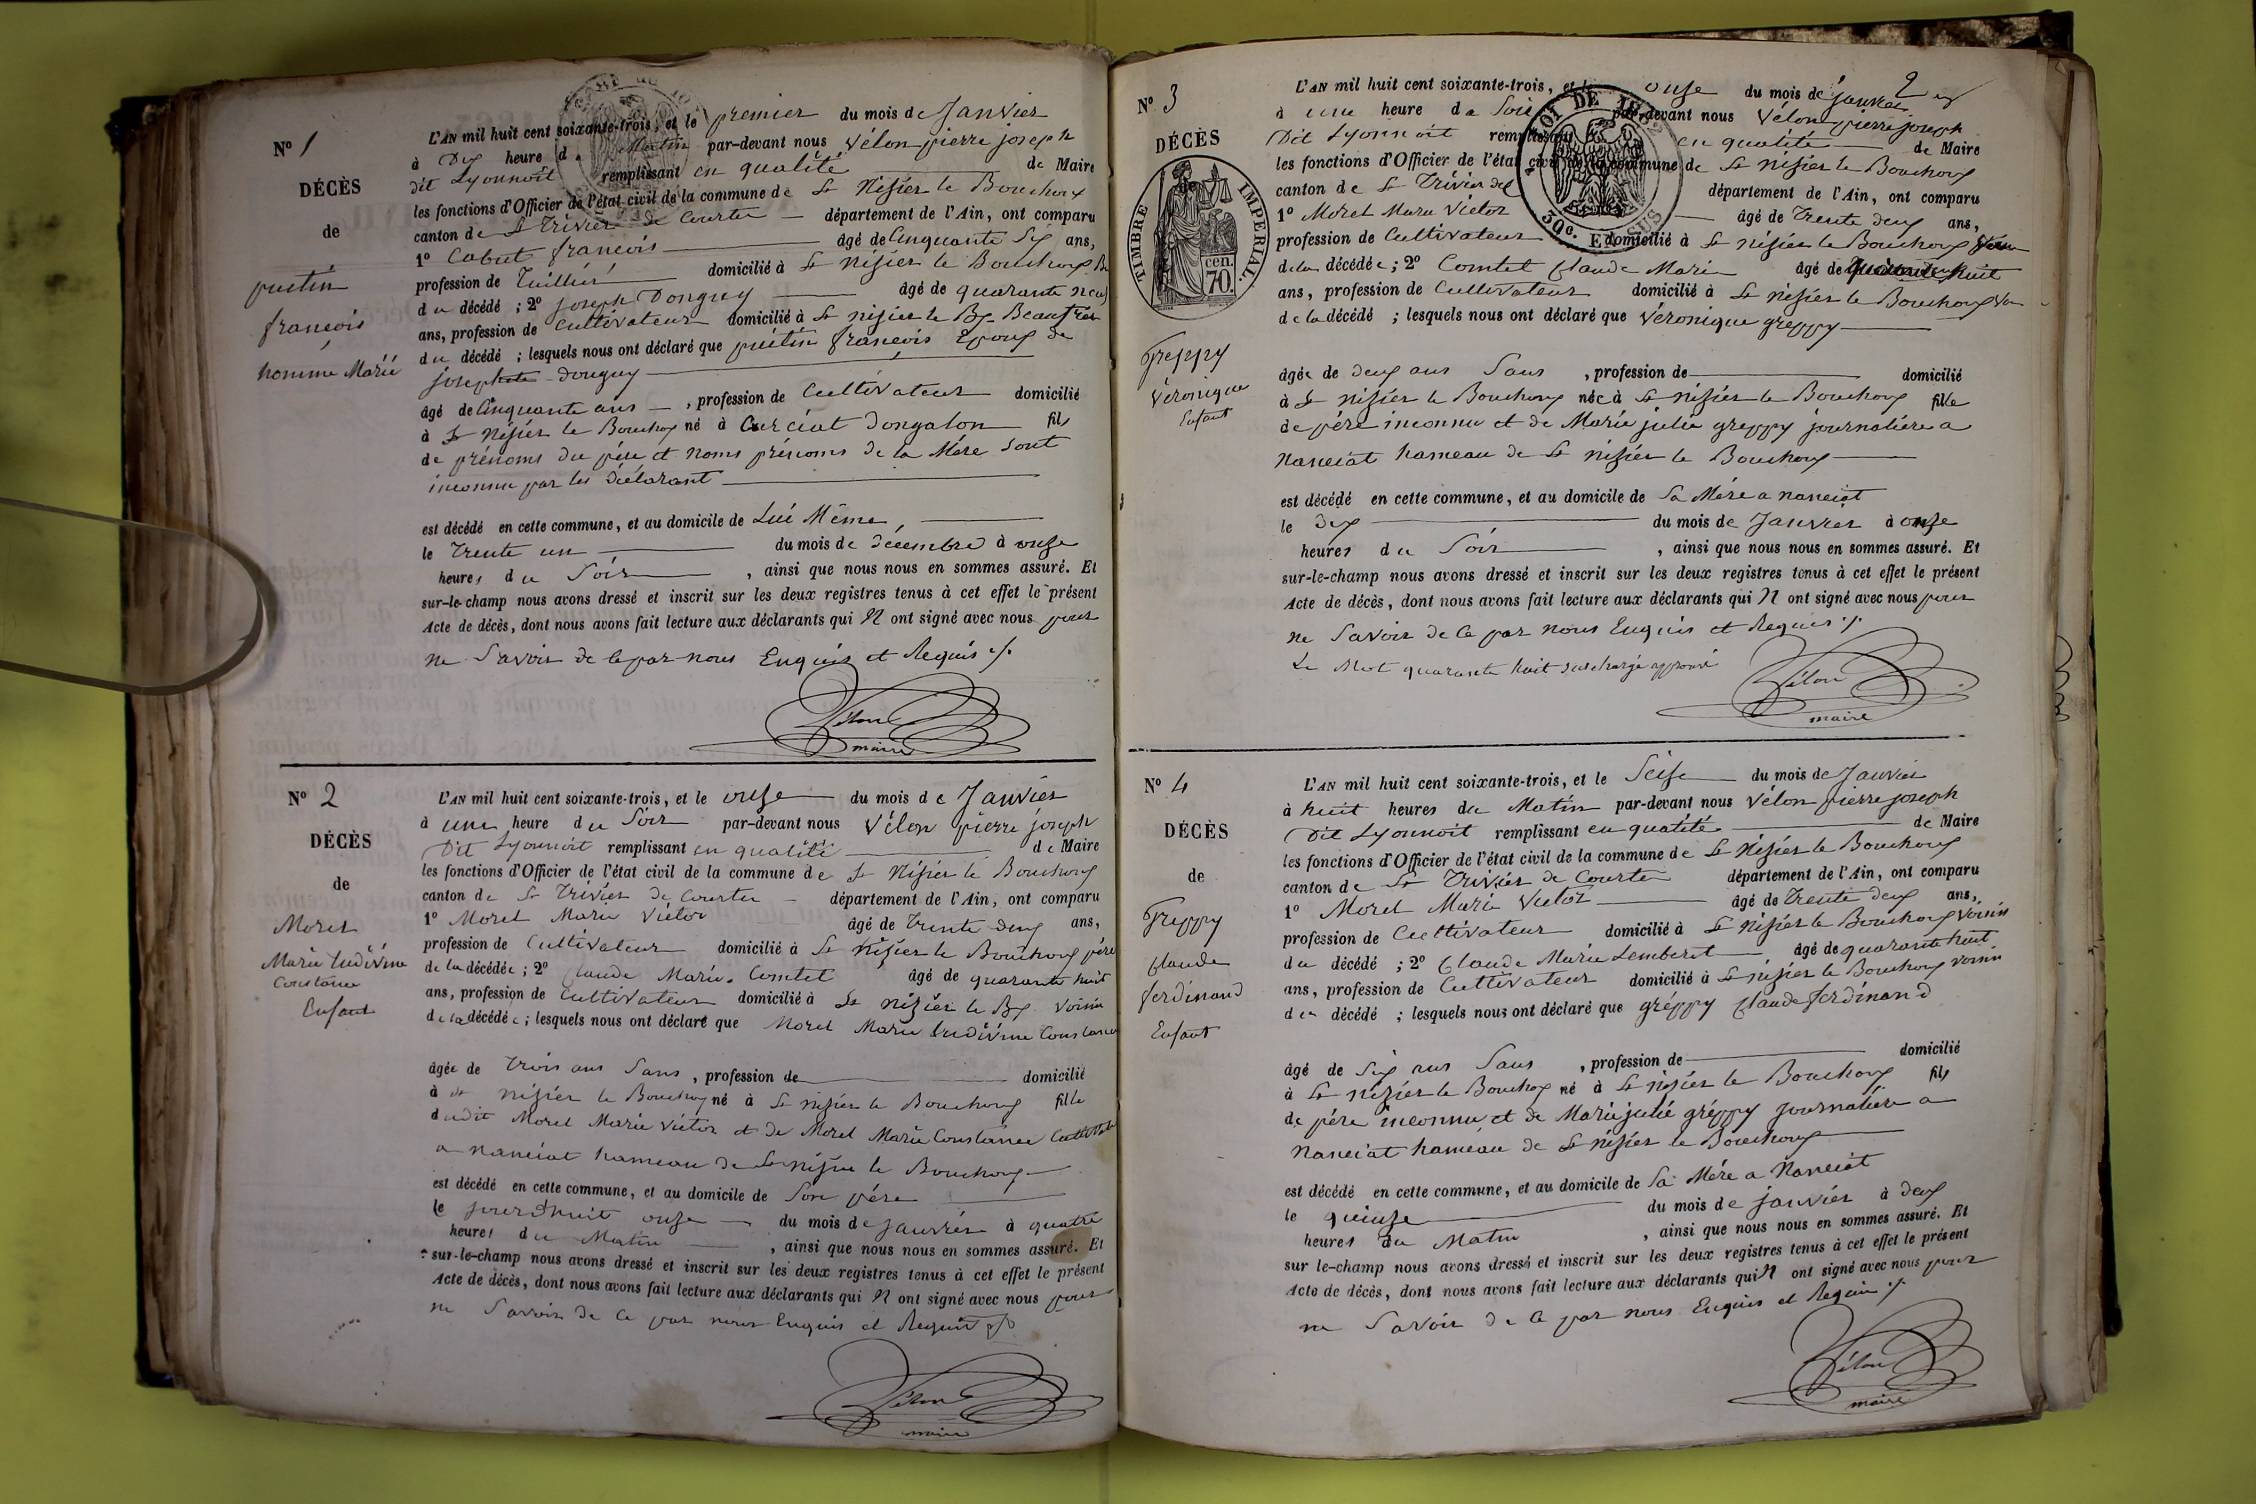 N° 1
DÉCÈS
de
putin
françois
homme Marié
L'AN mil huit cent soixante-trois, et le premier du mois de Janvier
à Dix heure du Matin par-devant nous Vélon pierre joseph
dit Lyonnoit remplissant en qualité de Maire
les fonctions d'Officier de l'état civil de la commune de St Nisier le Bouchoux
canton de St Trivier de Courtes département de l'Ain, ont comparu
1° Cabut françois âgé de Cinquante Six ans,
profession de Tuillier domicilié à St Nisier le Bouchoux
du décédé ; 2° Joseph Donguy âgé de quarante neuf
ans, profession de Cultivateur domicilié à St nisier le Bx Beaufrère
du décédé ; lesquels nous ont déclaré que putin françois Epoux de
josephete donguy
âgé de Cinquante ans , profession de Cultivateur domicilié
à St Nisier le Bouchoux né à Curciat dongalon fils
de prénoms du père et noms prénoms de la Mère Sont
inconnu par les Déclarant
est décédé en cette commune, et au domicile de Lui Même
le Trente un du mois de décembre à onze
heures du Soir , ainsi que nous nous en sommes assuré. Et
sur-le-champ nous avons dressé et inscrit sur les deux registres tenus à cet effet le présent
Acte de décès, dont nous avons fait lecture aux déclarants qui N ont signé avec nous pour
ne Savoir de ce par nous Enquis et Requis ./.
Vélon
maire
N° 2
DÉCÈS
de
Morel
Marie ludivine
Constance
Enfant
L'AN mil huit cent soixante-trois, et le onze du mois de Janvier
à une heure du Soir par-devant nous Vélon pierre joseph
Dit Lyonnoit remplissant en qualité de Maire
les fonctions d'Officier de l'état civil de la commune de St Nisier le Bouchoux
canton de St Trivier de Courtes département de l'Ain, ont comparu
1° Morel Marie Victor âgé de Trente deux ans,
profession de Cultivateur domicilié à St Nisier le Bouchoux père
de la décédée ; 2° Claude Marie Comtet âgé de quarante huit
ans, profession de Cultivateur domicilié à St nisier le Bx Voisin
de la décédée ; lesquels nous ont déclaré que Morel Marie ludivine Constance
âgée de Trois ans Sans , profession de domicilié
à St nisier le Bouchoux né à St nisier le Bouchoux fille
dudit Morel Marie Victor et de Morel Marie Constance
a nanciat hameau de St nisier le Bouchoux
est décédé en cette commune, et au domicile de Son père
le jourdhuit onze du mois de janvier à quatre
heures du Matin , ainsi que nous nous en sommes assuré. Et
sur-le-champ nous avons dressé et inscrit sur les deux registres tenus à cet effet le présent
Acte de décès, dont nous avons fait lecture aux déclarants qui N ont signé avec nous pour
ne Savoir de ce par nous Enquis et Requis ./.
Vélon
maire
2
N° 3
DÉCÈS
de
TIMBRE IMPÉRIAL.
70. cen.
LOI DE 1862
30c. EN SUS
Greppy
Véronique
Enfant
L'AN mil huit cent soixante-trois, et le onze du mois de janvier
à une heure de Soir par-devant nous Vélon pierre joseph
Dit Lyonnoit remplissant en qualité de Maire
les fonctions d'Officier de l'état civil de la commune de St Nisier le Bouchoux
canton de St Trivier de département de l'Ain, ont comparu
1° Morel Marie Victor âgé de Trente deux ans,
profession de Cultivateur domicilié à St Nisier le Bouchoux
de la décédée ; 2° Comtet Claude Marie âgé de quarante huit
ans, profession de Cultivateur domicilié à St Nisier le Bouchoux
de la décédé ; lesquels nous ont déclaré que Véronique greppy
âgée de deux ans Sans , profession de domicilié
à St Nisier le Bouchoux née à St Nisier le Bouchoux fille
de père inconnu et de Marie julie greppy journalière a
Nanciat hameau de St nisier le Bouchoux
est décédé en cette commune, et au domicile de Sa Mère a nanciat
le dix du mois de Janvier à onze
heures du Soir , ainsi que nous nous en sommes assuré. Et
sur-le-champ nous avons dressé et inscrit sur les deux registres tenus à cet effet le présent
Acte de décès, dont nous avons fait lecture aux déclarants qui N ont signé avec nous pour
ne Savoir de ce par nous Enquis et Requis ./.
Le Mot quarante huit surchargé approuvé
Vélon
maire
N° 4
DÉCÈS
de
Greppy
Claude
ferdinand
Enfant
L'AN mil huit cent soixante-trois, et le Seize du mois de Janvier
à huit heures du Matin par-devant nous Vélon pierre joseph
Dit Lyonnoit remplissant en qualité de Maire
les fonctions d'Officier de l'état civil de la commune de St Nisier le Bouchoux
canton de St Trivier de Courtes département de l'Ain, ont comparu
1° Morel Marie Victor âgé de Trente deux ans,
profession de Cultivateur domicilié à St Nisier le Bouchoux Voisin
du décédé ; 2° Claude Marie Lemberet âgé de quarante huit
ans, profession de Cultivateur domicilié à St nisier le Bouchoux voisin
du décédé ; lesquels nous ont déclaré que gréppy Claude ferdinand
âgé de Six ans Sans , profession de domicilié
à St Nizier le Bouchoux né à St nisier le Bouchoux fils
de père inconnu et de Marie julie gréppy journalière a
Nanciat hameau de St nisier le Bouchoux
est décédé en cette commune, et au domicile de Sa Mère a Nanciat
le quinze du mois de janvier à deux
heures du Matin , ainsi que nous nous en sommes assuré. Et
sur le-champ nous avons dressé et inscrit sur les deux registres tenus à cet effet le présent
Acte de décès, dont nous avons fait lecture aux déclarants qui N ont signé avec nous pour
ne Savoir de ce par nous Enquis et Requis ./.
Vélon
maire